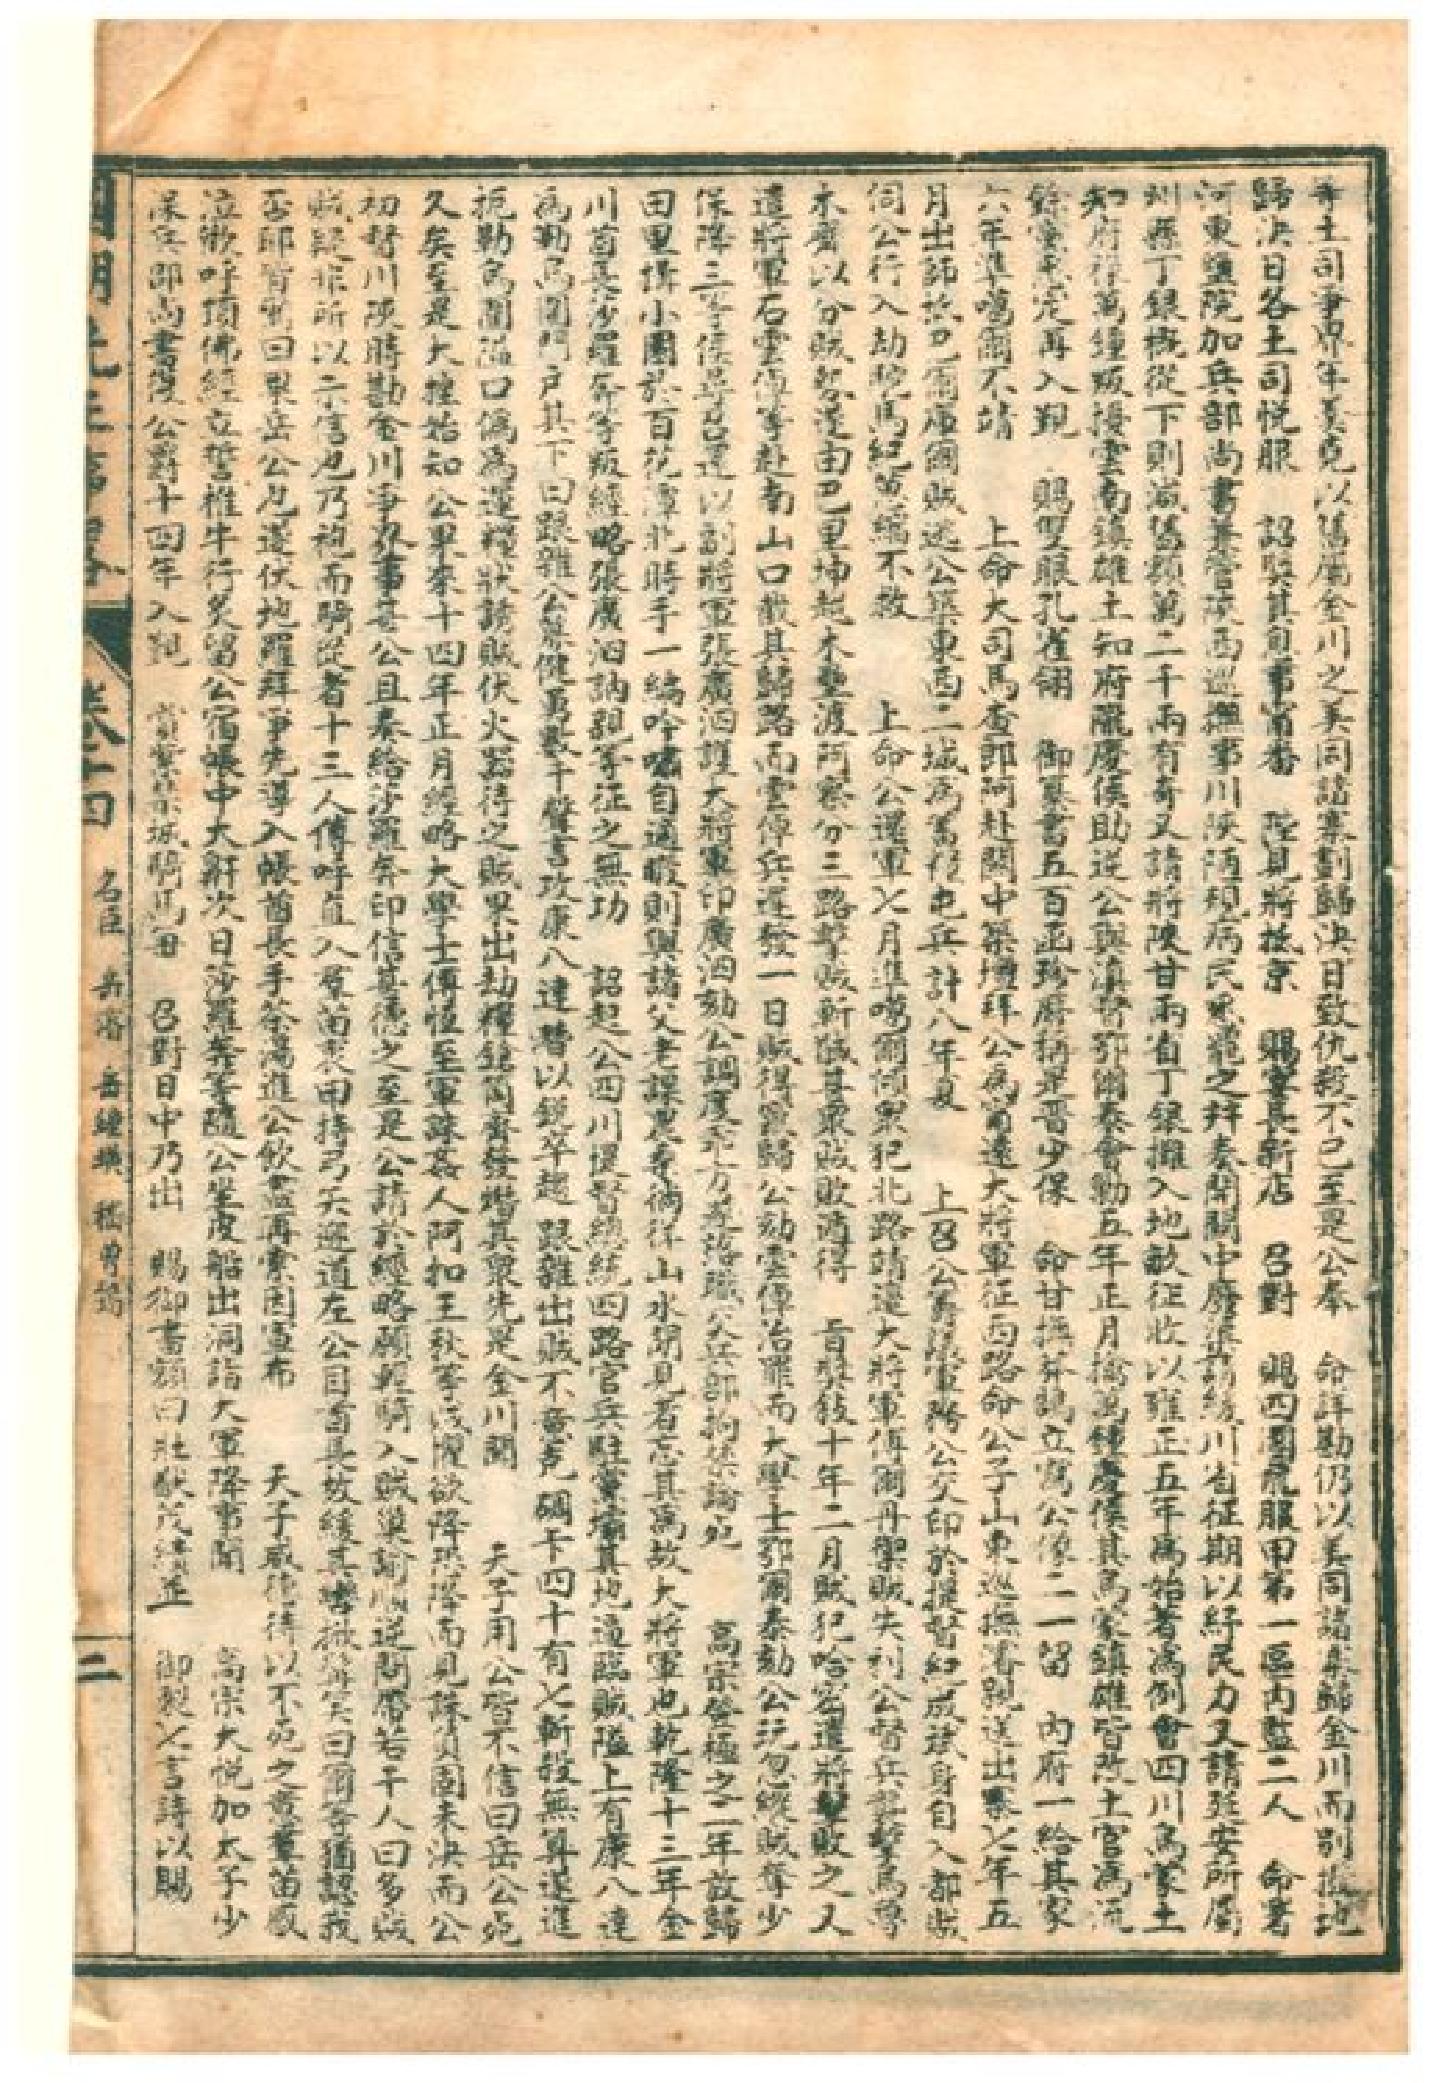 等土司爭界年羹堯以舊屬金川之美同諸寨劃歸決日致仇殺不已至是公奉　命詳勘仍以美同諸寨歸金川而別撥地
歸決日各土司悅服　詔獎其貞事甯番　陛見將抵京　賜宴長新店　召對　賜四團龍服甲第一區內監二人　命署
河東鹽院加兵部尚書兼管陝西巡撫事川陝陋規病民悉罷之幷奏開關中廢渠請緩川省征期以紓民力又請延安所屬
州縣丁銀概從下則減舊額萬二千兩有奇又請將陝甘兩省丁銀攤入地畝征收以雍正五年為始著為例會四川烏蒙土
知府祿萬鍾叛擾雲南鎮雄土知府隴慶侯助逆公與滇督鄂爾泰會勦五年正月擒萬鍾慶侯其烏蒙鎮雄皆改土官為流
餘黨悉定再入覲　賜雙眼孔雀翎　御纂書五百函珍廚稱是晉少保　命甘撫莽鵠立寫公像二一留　內府一給其家
六年準噶爾不靖　上命大司馬查郎阿赴關中築壇拜公為甯遠大將軍征西路命公子山東巡撫濬親送出塞七年五
月出師於巴爾庫爾賊逃公築東西二城為蓄糧屯兵計八年夏　上召公籌議軍務公交印於提督紀成斌身自入都賊
伺公行入劫駝馬紀畏縮不救　上命公還軍七月準噶爾傾眾犯北路靖邊大將軍傅爾丹禦賊失利公督兵襲擊烏魯
木齊以分賊勢遂由巴里坤越木壘渡阿察分三路擊賊斬馘甚眾賊敗遁得　旨獎敘十年二月賊犯哈密遣將擊敗之又
遣將軍石雲倬等赴南山口截其歸路而雲倬兵遲發一日賊得竄歸公劾雲倬治罪而大學士鄂爾泰劾公玩忽縱賊奪少
保降三等侯尋召還以副將軍張廣泗護大將軍印廣泗劾公調度乖方遂落職交兵部拘禁論死　高宗登極之二年放歸
田里搆小園於百花潭北時手一編吟嘯自適暇則與諸父老課農桑徜徉山水閒見者忘其為故大將軍也乾隆十三年金
川酋長沙羅奔等叛經略張廣泗訥親等征之無功　詔起公四川提督總統四路官兵駐黨壩其地逼臨賊隘上有康八達
為勒烏圍門戶其下曰跟雜公募健勇數千聲言攻康八達潛以銳卒趨跟雜出賊不意克碉卡四十有七斬殺無算遂進
扼勒烏圍隘口偽為運糧狀誘賊伏火器待之賊果出劫糧鎗箭齊發殲其眾先是金川聞　天子用公皆不信曰岳公死
久矣至是大挫始知公果來十四年正月經略大學士傅恆至軍誅姦人阿扣王秋等賊懼欲降恐降而見誅負固未決而公
初督川陝時勘金川爭界事甚公且奏給沙羅奔印信甚德之至是公請於經略願輕騎入賊巢諭順逆問帶若干人曰多賊
賊疑非所以示信也乃袍而騎從者十三人傳呼直入羣酋裹田持弓矢迎道左公目酋長故緩其轡掀髯笑曰爾等猶認我
否耶皆驚曰果岳公也遂伏地羅拜爭先導入帳酋長手茶湯進公飲盡再索因宣布　天子威德待以不死之意羣酋感
泣歡呼頂佛經立誓椎牛行炙留公宿帳中大鼾次日莎羅奔等隨公坐皮船出洞詣大軍降事聞　高宗大悅加太子少
保兵部尚書復公爵十四年入覲　賞紫禁城騎馬　召對日中乃出　賜御書額曰壯猷茂績並　御製七言詩以賜
卷十四　名臣　岳鍾琪
二